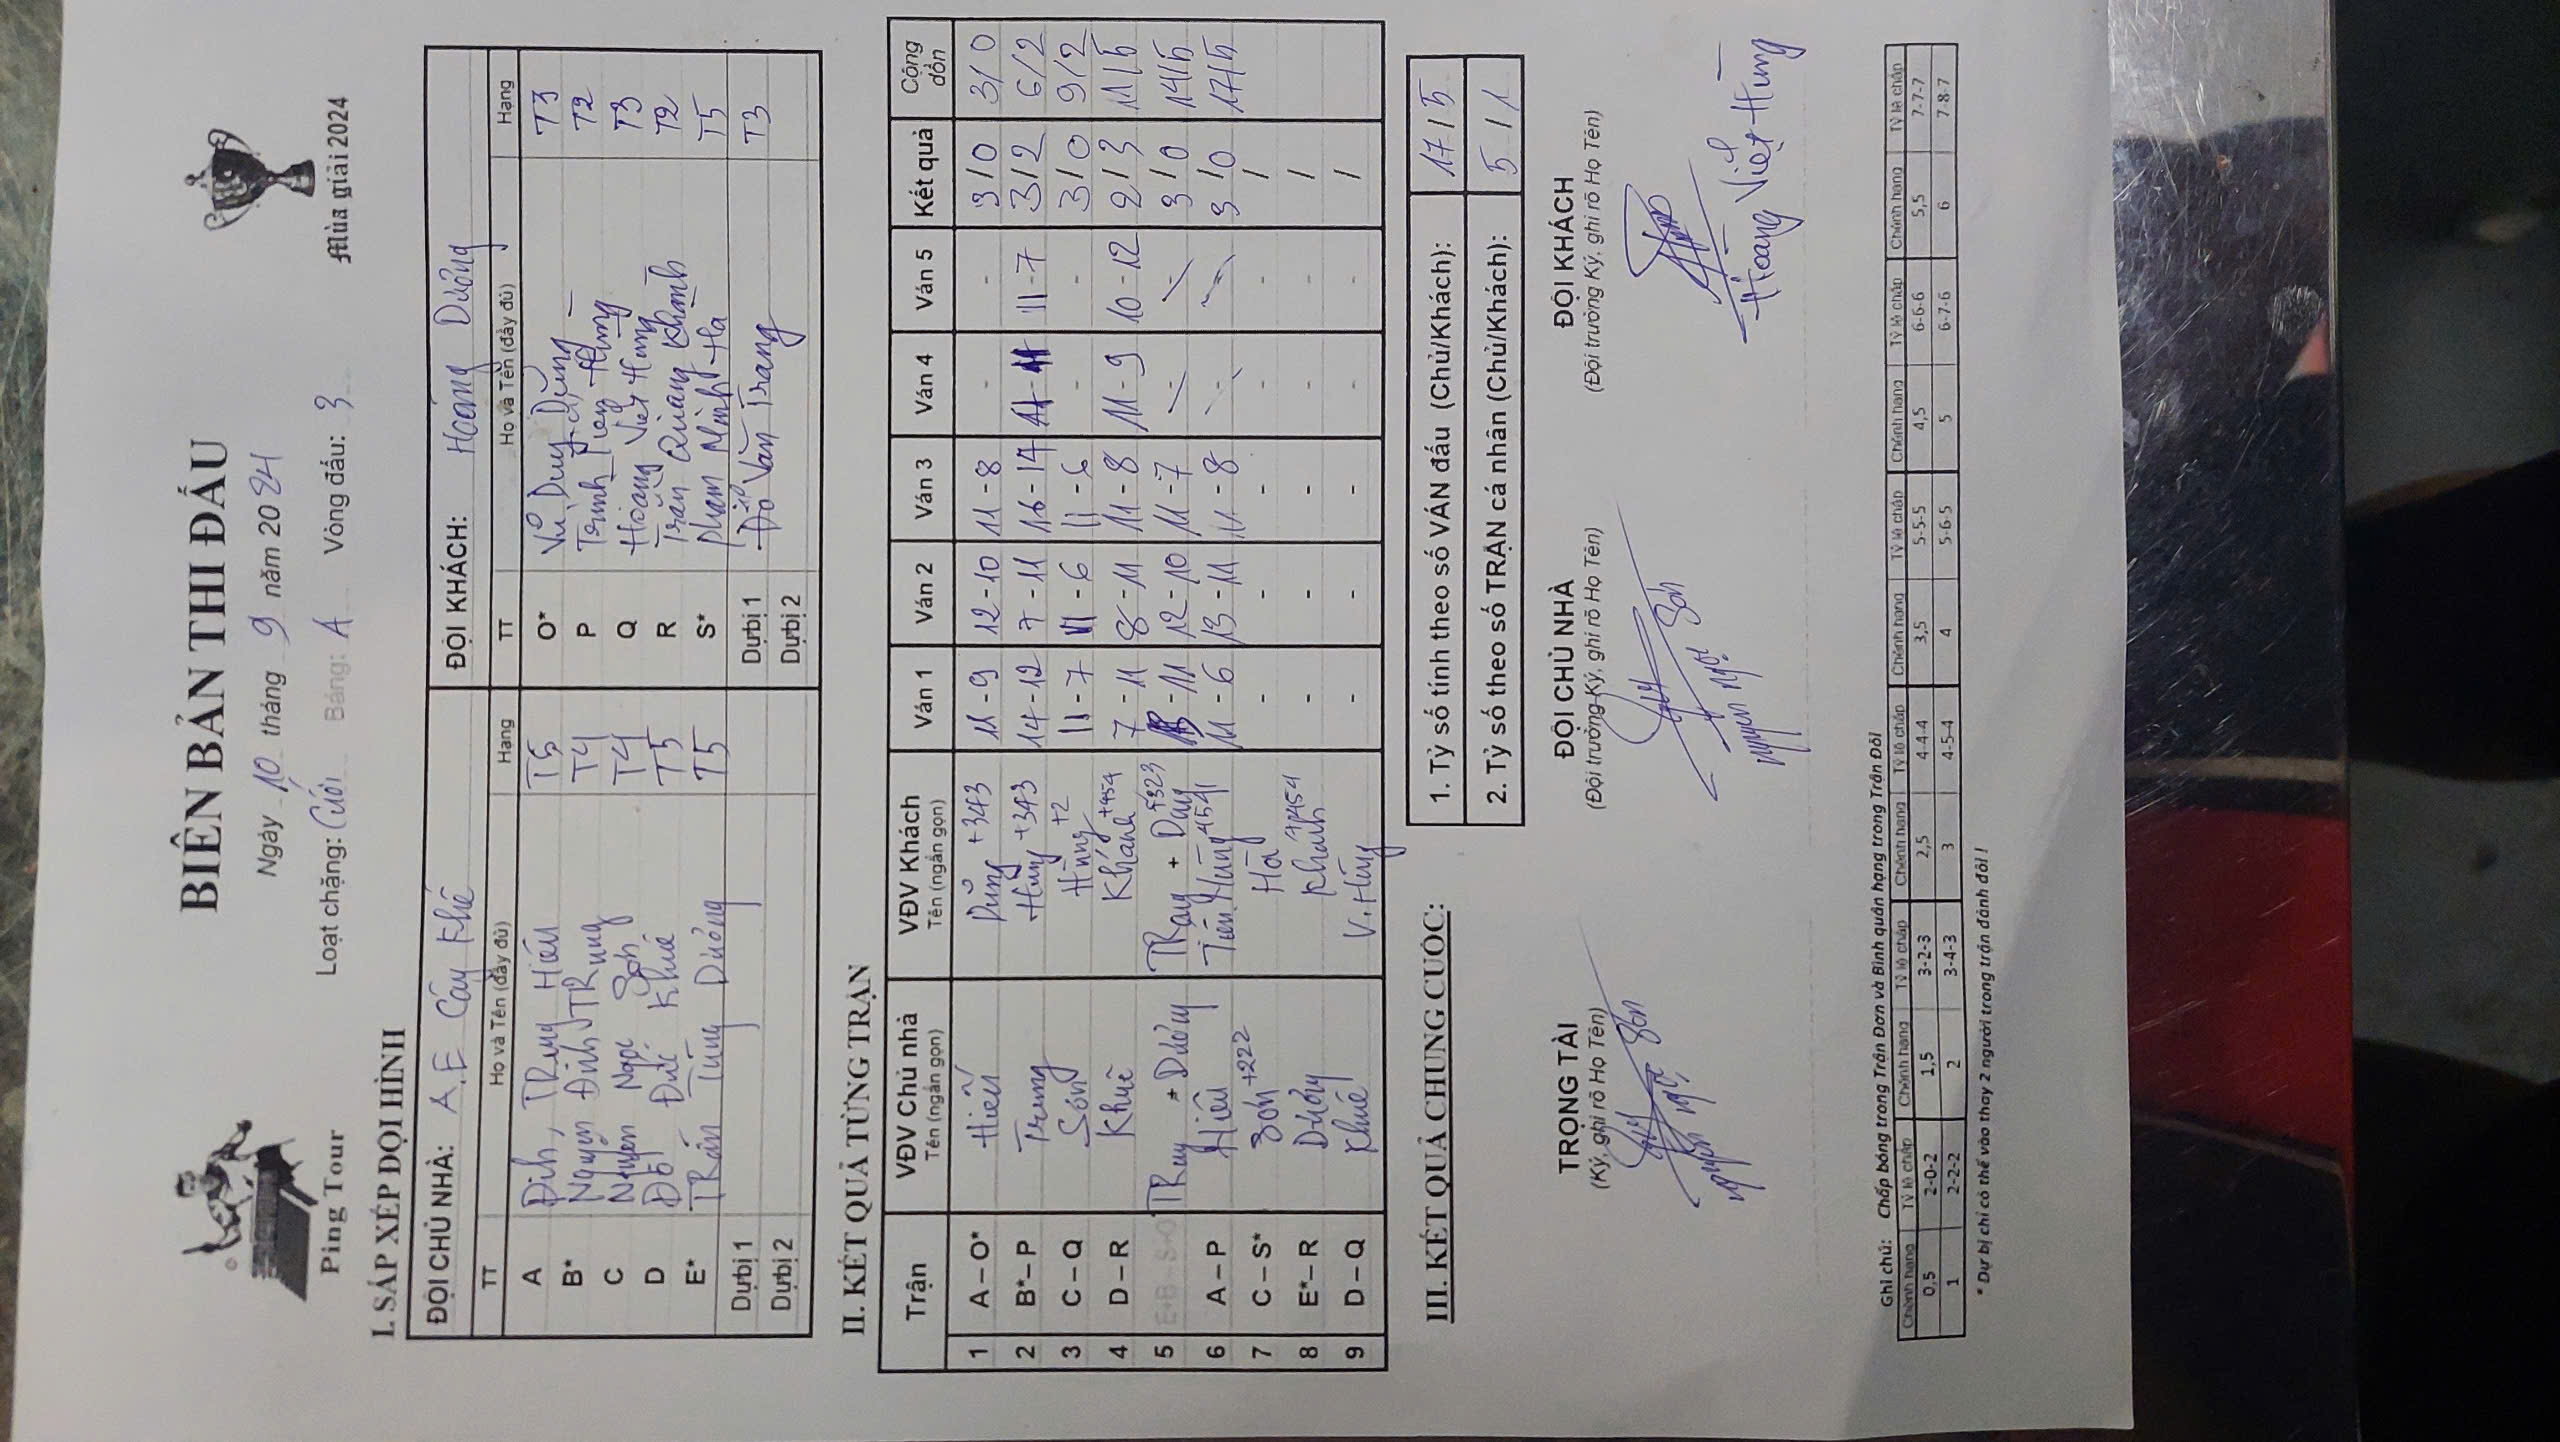 Ping Tour
BIÊN BẢN THI ĐẤU
Ngày 10 tháng 9 năm 2024
Mùa giải 2024
Loạt chặng: Cuối Bảng: A Vòng đấu: 3
I. SẮP XẾP ĐỘI HÌNH
ĐỘI CHỦ NHÀ: A.E Cây Khế ĐỘI KHÁCH: Hoàng Dương
TT Họ và Tên (đầy đủ) Hạng TT Họ và Tên (đầy đủ) Hạng
A Đinh Trung Hiếu T5 O* Vũ Duy Dũng T3
B* Nguyễn Đình Trung T4 P Trịnh Tiến Hưng T2
C Nguyễn Ngọc Sơn T4 Q Hoàng Việt Hùng T3
D Đỗ Đức Khuê T5 R Trần Quang Khánh T2
E* Trần Tùng Dương T5 S* Phạm Minh Hà T5
Dự bị 1 Dự bị 1 Đỗ Văn Trang T3
Dự bị 2 Dự bị 2
II. KẾT QUẢ TỪNG TRẬN
Trận VĐV Chủ nhà Tên (ngắn gọn) VĐV Khách Tên (ngắn gọn) Ván 1 Ván 2 Ván 3 Ván 4 Ván 5 Kết quả Cộng dồn
1 A – O* Hiếu Dũng +343 11 - 9 12 - 10 11 - 8 - - 3/0 3/0
2 B* – P Trung Hưng +343 14 - 12 7 - 11 16 - 14 - 11 - 7 3/2 6/2
3 C – Q Sơn Hùng +2 11 - 7 11 - 6 11 - 6 - - 3/0 9/2
4 D – R Khuê Khánh +454 7 - 11 8 - 11 11 - 8 11 - 9 10 - 12 2/3 11/5
5 E+B – S+O Trung + Dương Trang + Dũng +323 - 11 12 - 10 11 - 7 - - 3/0 14/5
6 A – P Hiếu Tiến Hưng 11 - 6 13 - 11 11 - 8 - - 3/0 17/5
7 C – S* Sơn +222 Hà - - - - - /
8 E* – R Dương Khánh +454 - - - - - /
9 D – Q Khuê V. Hùng - - - - - /
III. KẾT QUẢ CHUNG CUỘC:
1. Tỷ số tính theo số VÁN đấu (Chủ/Khách): 17/5
2. Tỷ số theo số TRẬN cá nhân (Chủ/Khách): 5/1
TRỌNG TÀI ĐỘI CHỦ NHÀ ĐỘI KHÁCH
(Ký, ghi rõ Họ Tên) (Đội trưởng Ký, ghi rõ Họ Tên) (Đội trưởng Ký, ghi rõ Họ Tên)
Nguyễn Ngọc Sơn Nguyễn Ngọc Sơn Hoàng Việt Hùng
Ghi chú: Chấp bóng trong Trận Đơn và Bình quân hạng trong Trận Đôi
Chênh hạng Tỷ lệ chấp Chênh hạng Tỷ lệ chấp Chênh hạng Tỷ lệ chấp Chênh hạng Tỷ lệ chấp Chênh hạng Tỷ lệ chấp Chênh hạng Tỷ lệ chấp
0,5 2-0-2 1,5 3-2-3 2,5 4-4-4 3,5 5-5-5 4,5 6-6-6 5,5 7-7-7
1 2-2-2 2 3-4-3 3 4-5-4 4 5-6-5 5 6-7-6 6 7-8-7
* Dự bị chỉ có thể vào thay 2 người trong trận đánh đôi !